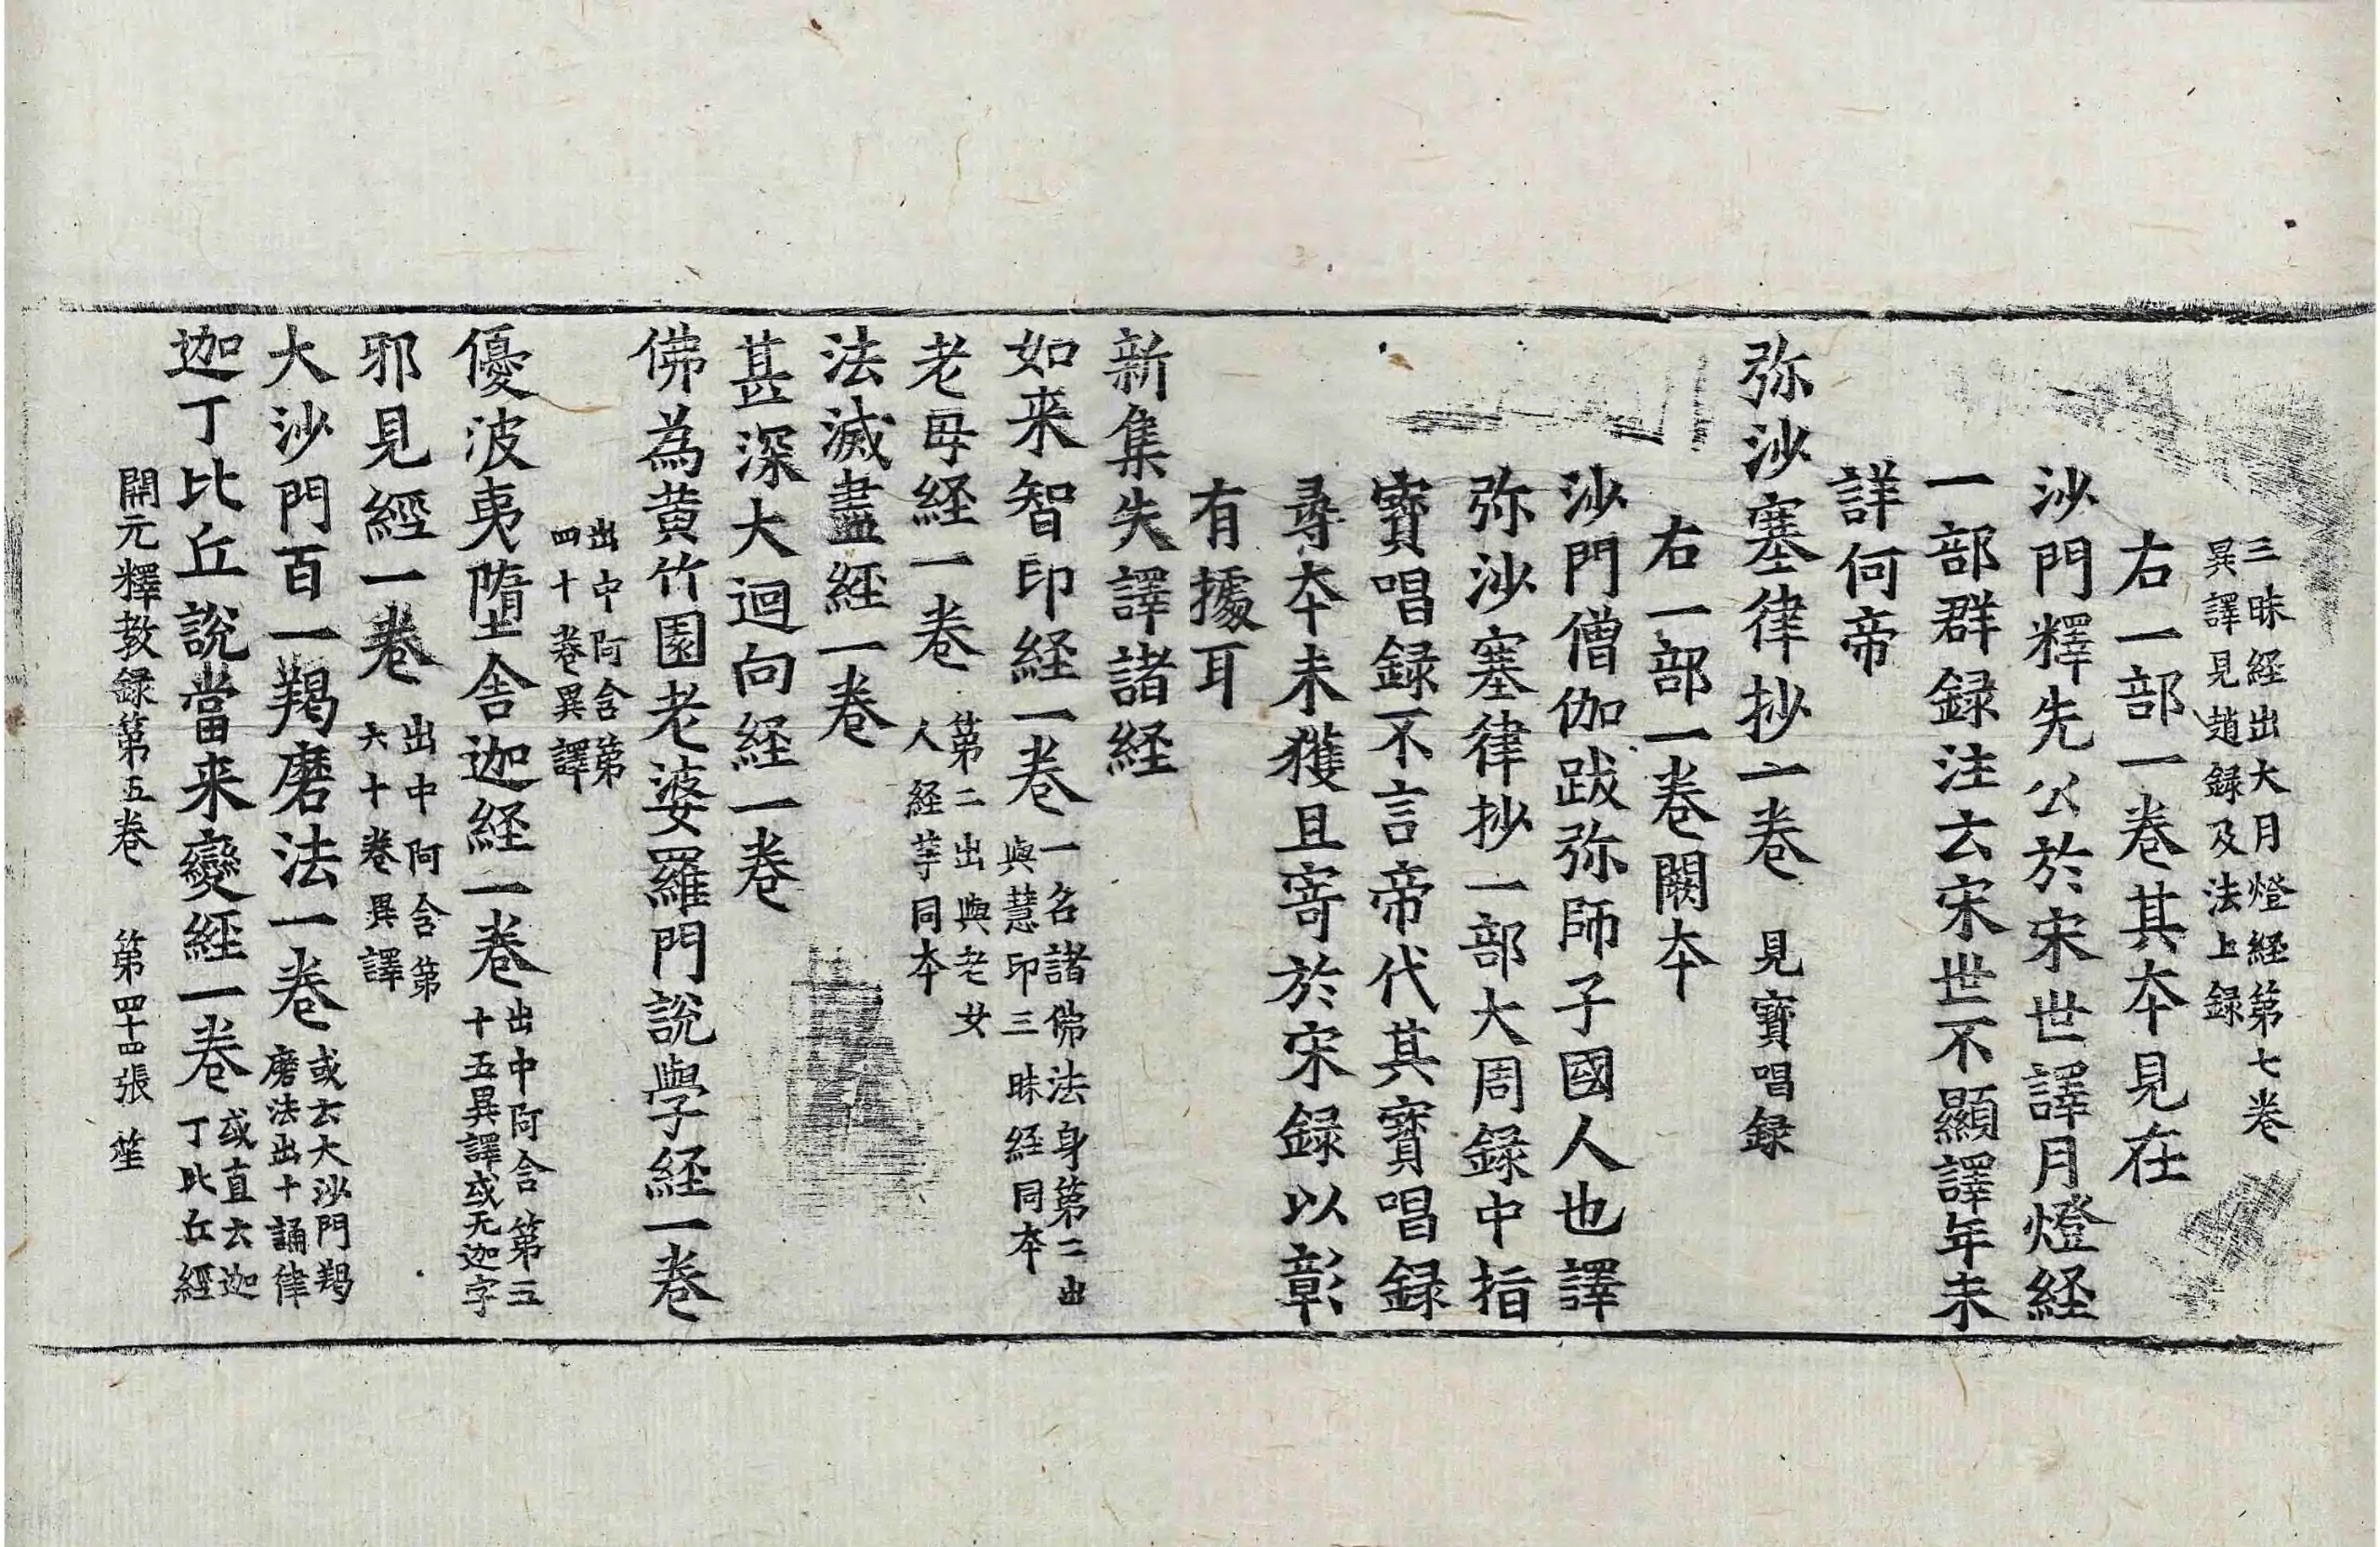 三昧経出大月燈経第七卷
異譯見趙録及法上録
右一部一卷其夲見在
沙門釋先公於宋世譯月燈経
一部群録注云宋世不顯譯年未
詳何帝
弥沙塞律抄一卷 見寳唱録
右一部一卷闕夲
沙門僧伽跋弥師子國人也譯
弥沙塞律抄一部大周錄中指
寳唱録不言帝代其寳唱録
尋夲未獲且寄於宋録以彰
有據耳
新集失譯諸経
如来智印経一卷 一名諸佛法身第二出
與慧印三昧経同夲
老母経一卷 第二出與老女
人経等同夲
法滅盡経一卷
甚深大迴向経一卷
佛為黄竹園老婆羅門說學経一卷
出中阿含第
四十卷異譯
優波夷墮舎迦経一卷 出中阿含第五
十五異譯或无迦字
邪見經一卷 出中阿含第
六十卷異譯
大沙門百一羯磨法一卷 或云大沙門羯
磨法出十誦律
迦丁比丘說當来變経一卷 或直云迦
丁比丘經
開元釋教録第五卷 第四十四張 笙